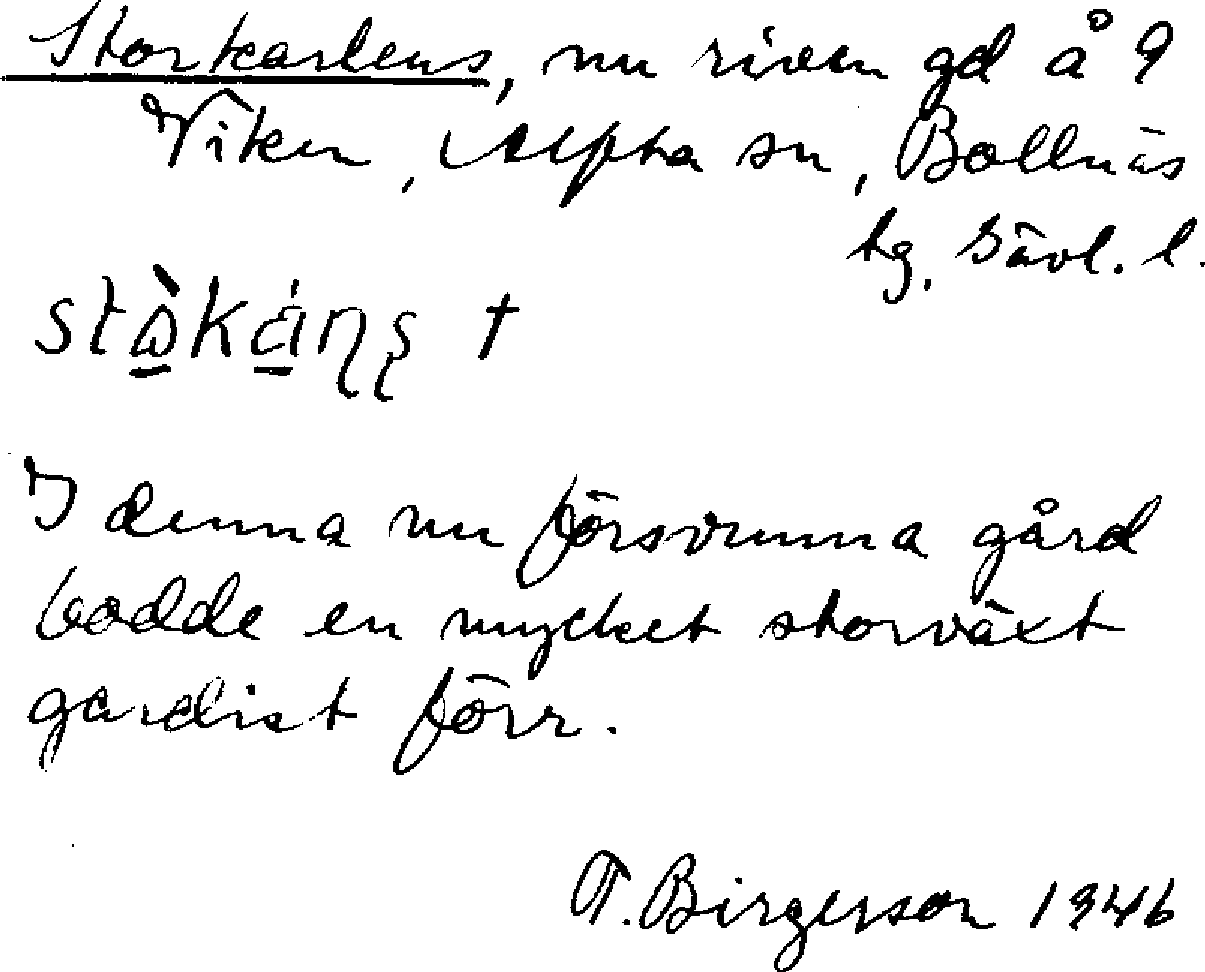 Storkarlens, nu riven gd å 9
Viken, Alfta sn, Bollnäs
tg. Gävl. l.
†
I denna nu försvunna gård
bodde en mycket storväxt
gardist förr.
T. Birgerson 1946